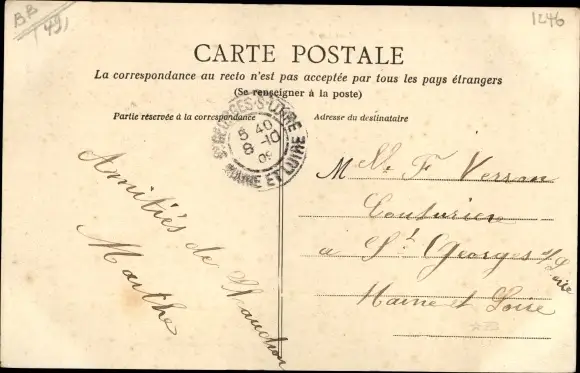 BB
(49)
1246
CARTE POSTALE
La correspondance au recto n'est pas acceptée par tous les pays étrangers
(Se renseigner à la poste)
Partie réservée à la correspondance
Adresse du destinataire
ST GEORGES-S-LOIRE
5 40
8 -10
09
MAINE ET LOIRE
Amitiés de
Marthe
Melle F. Verron
Couturière
à St Georges s/Loire
Maine et Loire